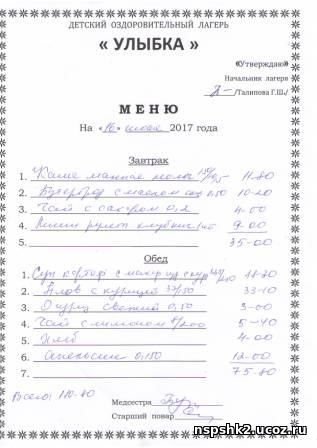 ДЕТСКИЙ ОЗДОРОВИТЕЛЬНЫЙ ЛАГЕРЬ
« УЛЫБКА »
«Утверждаю»
Начальник лагеря
/Талипова Г.Ш./
МЕНЮ
На «16» июня 2017 года
Завтрак
1. Каша манная молоч 11-80
2. Бутерброд с маслом 10-20
3. Чай с сахаром 0,2 4-00
4. рулет клубнич 9-00
5. 35-00
Обед
1. Суп картоф с макар 18-30
2. Плов с курицей 37/50 33-10
3. Огурец свежий 0,50 3-00
4. Чай с лимоном /200 5-40
5. Хлеб 4-00
6. Апельсин 0,150 12-00
7. 75-80
Всего: 110-80
Медсестра
Старший повар
nspshk2.ucoz.ru